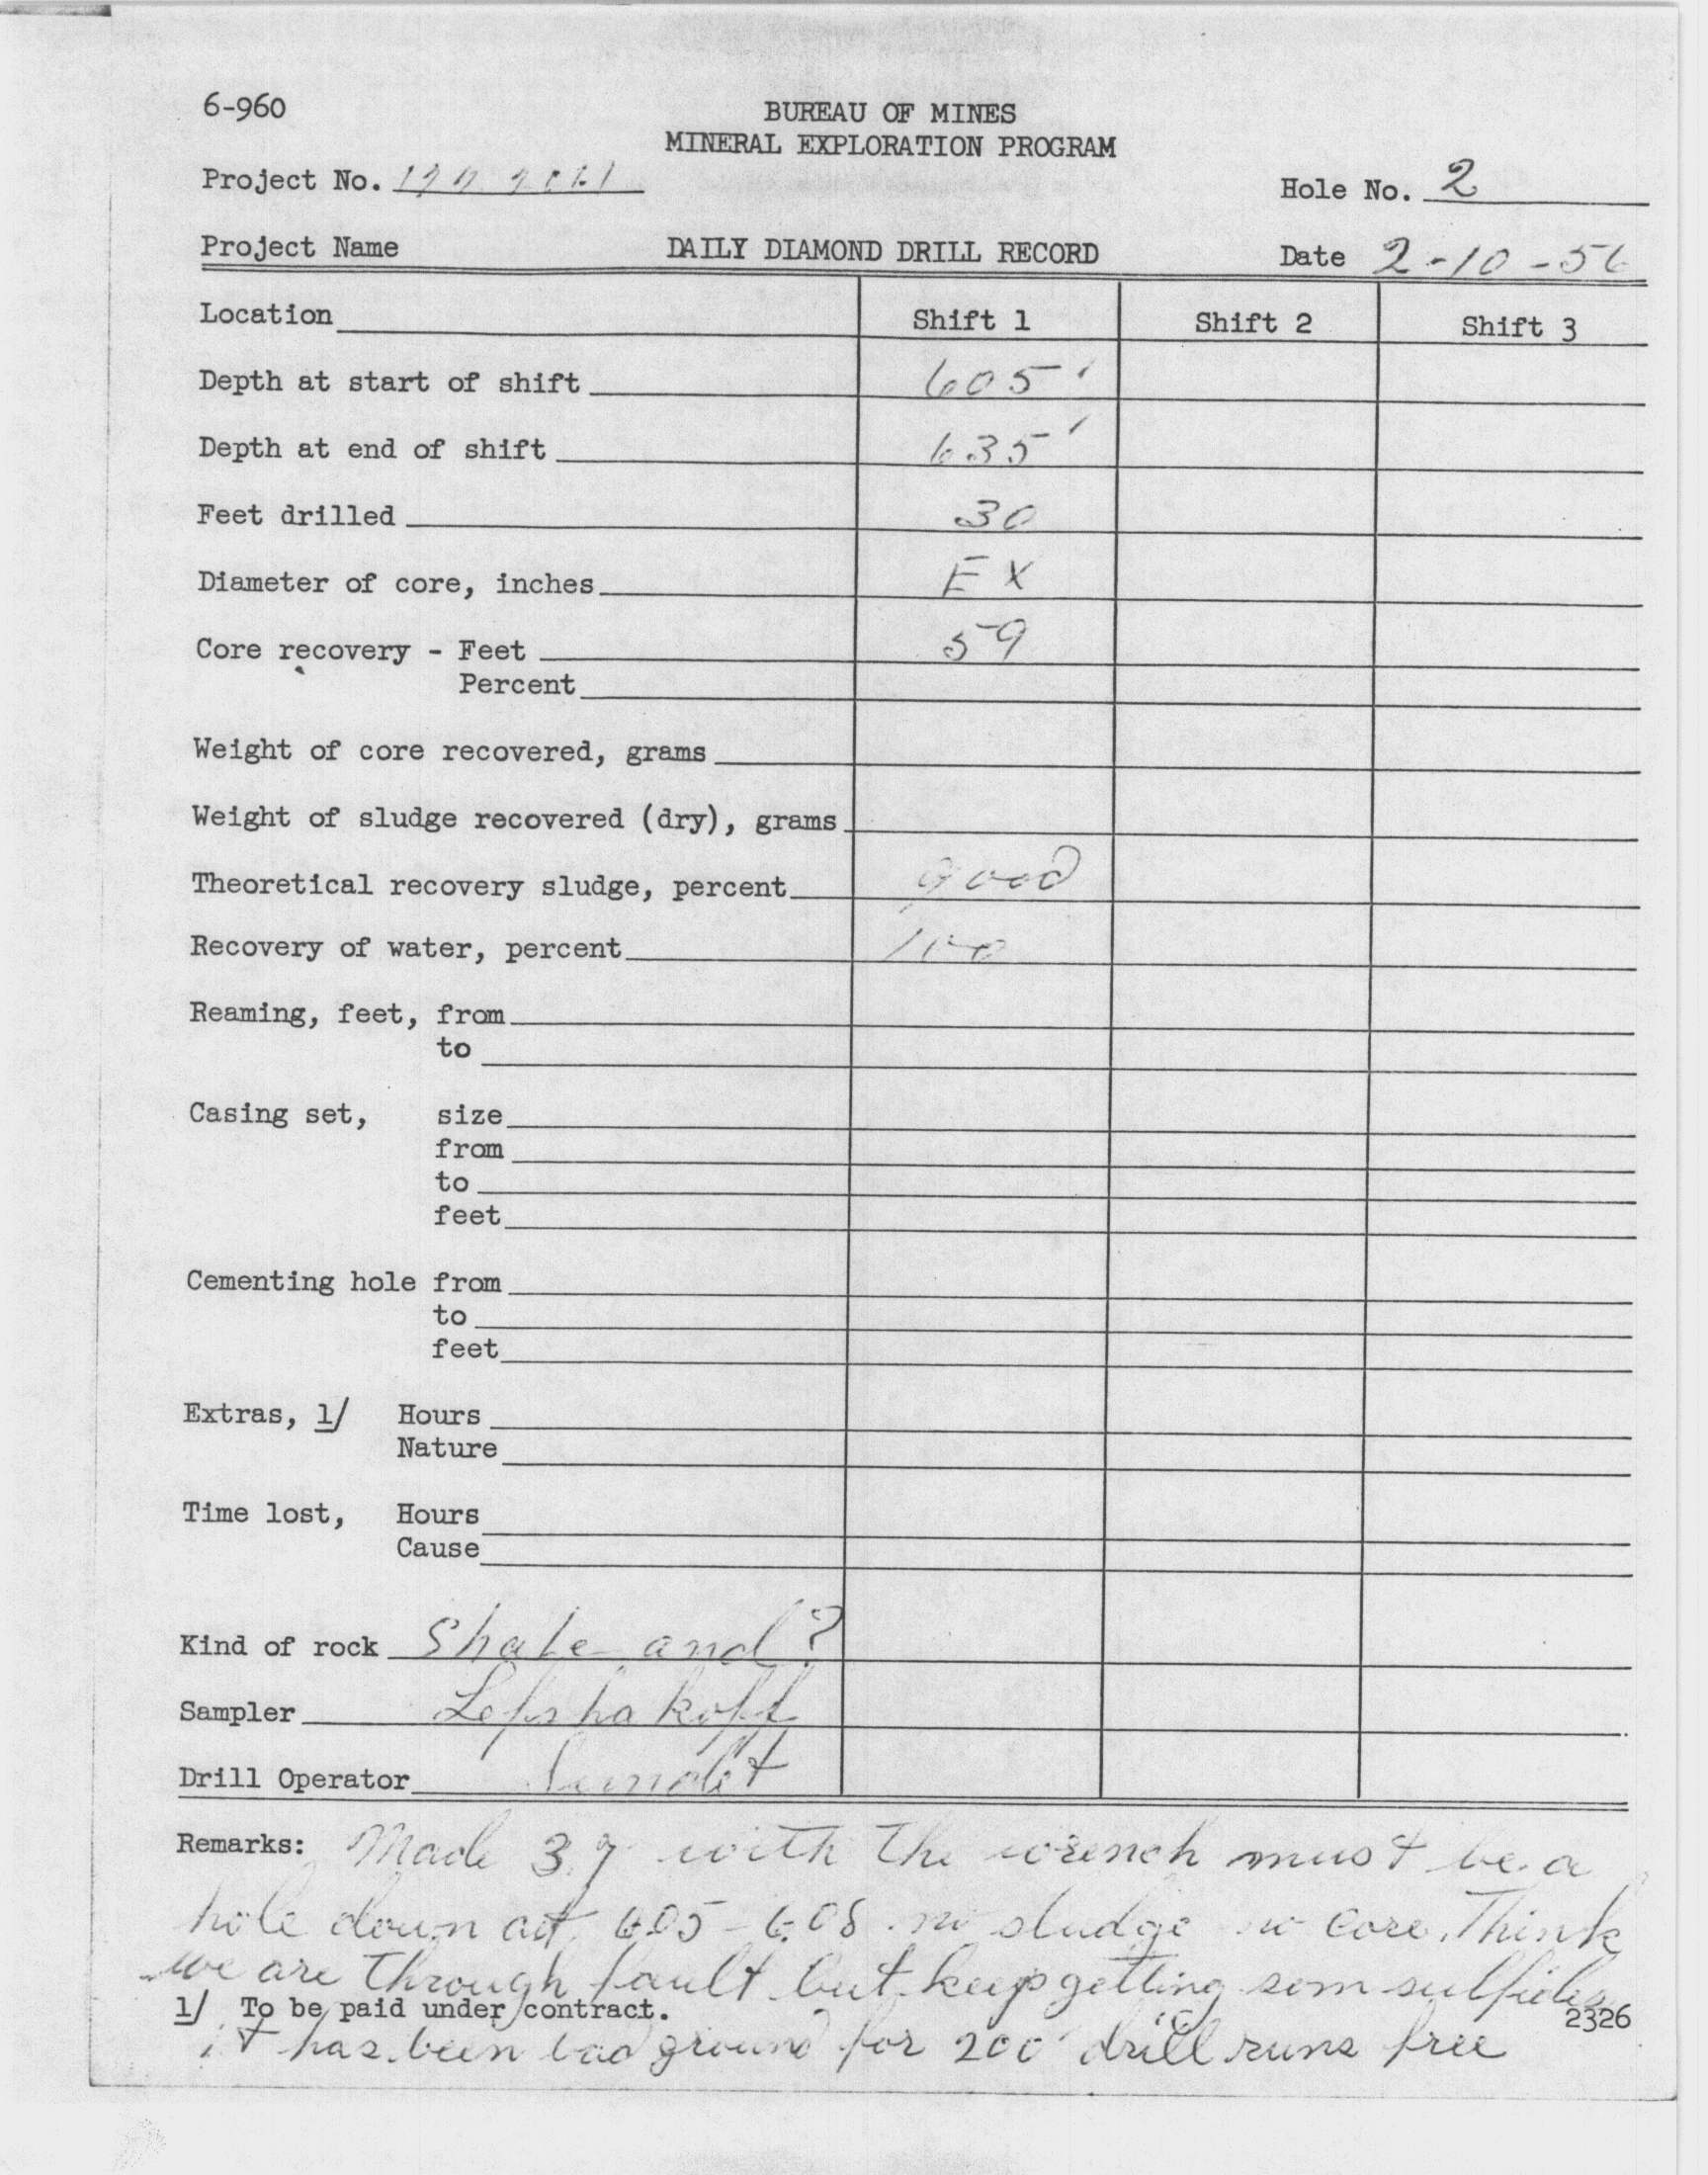 6-960
BUREAU OF MINES
MINERAL EXPLORATION PROGRAM
Project No.
Hole No. 2
Project Name DAILY DIAMOND DRILL RECORD Date 2-10-56
Location Shift 1 Shift 2 Shift 3
Depth at start of shift 605'
Depth at end of shift 635'
Feet drilled 30
Diameter of core, inches EX
Core recovery - Feet 59
Percent
Weight of core recovered, grams
Weight of sludge recovered (dry), grams
Theoretical recovery sludge, percent good
Recovery of water, percent 100
Reaming, feet, from
to
Casing set, size
from
to
feet
Cementing hole from
to
feet
Extras, 1/ Hours
Nature
Time lost, Hours
Cause
Kind of rock Shale and ?
Sampler
Drill Operator
Remarks: Made with the wrench must be a
hole down at 605-608 no sludge no core. Think
we are through fault but keep getting som sulfides
1/ To be paid under contract.
2326
it has been bad ground for 200' drill runs free